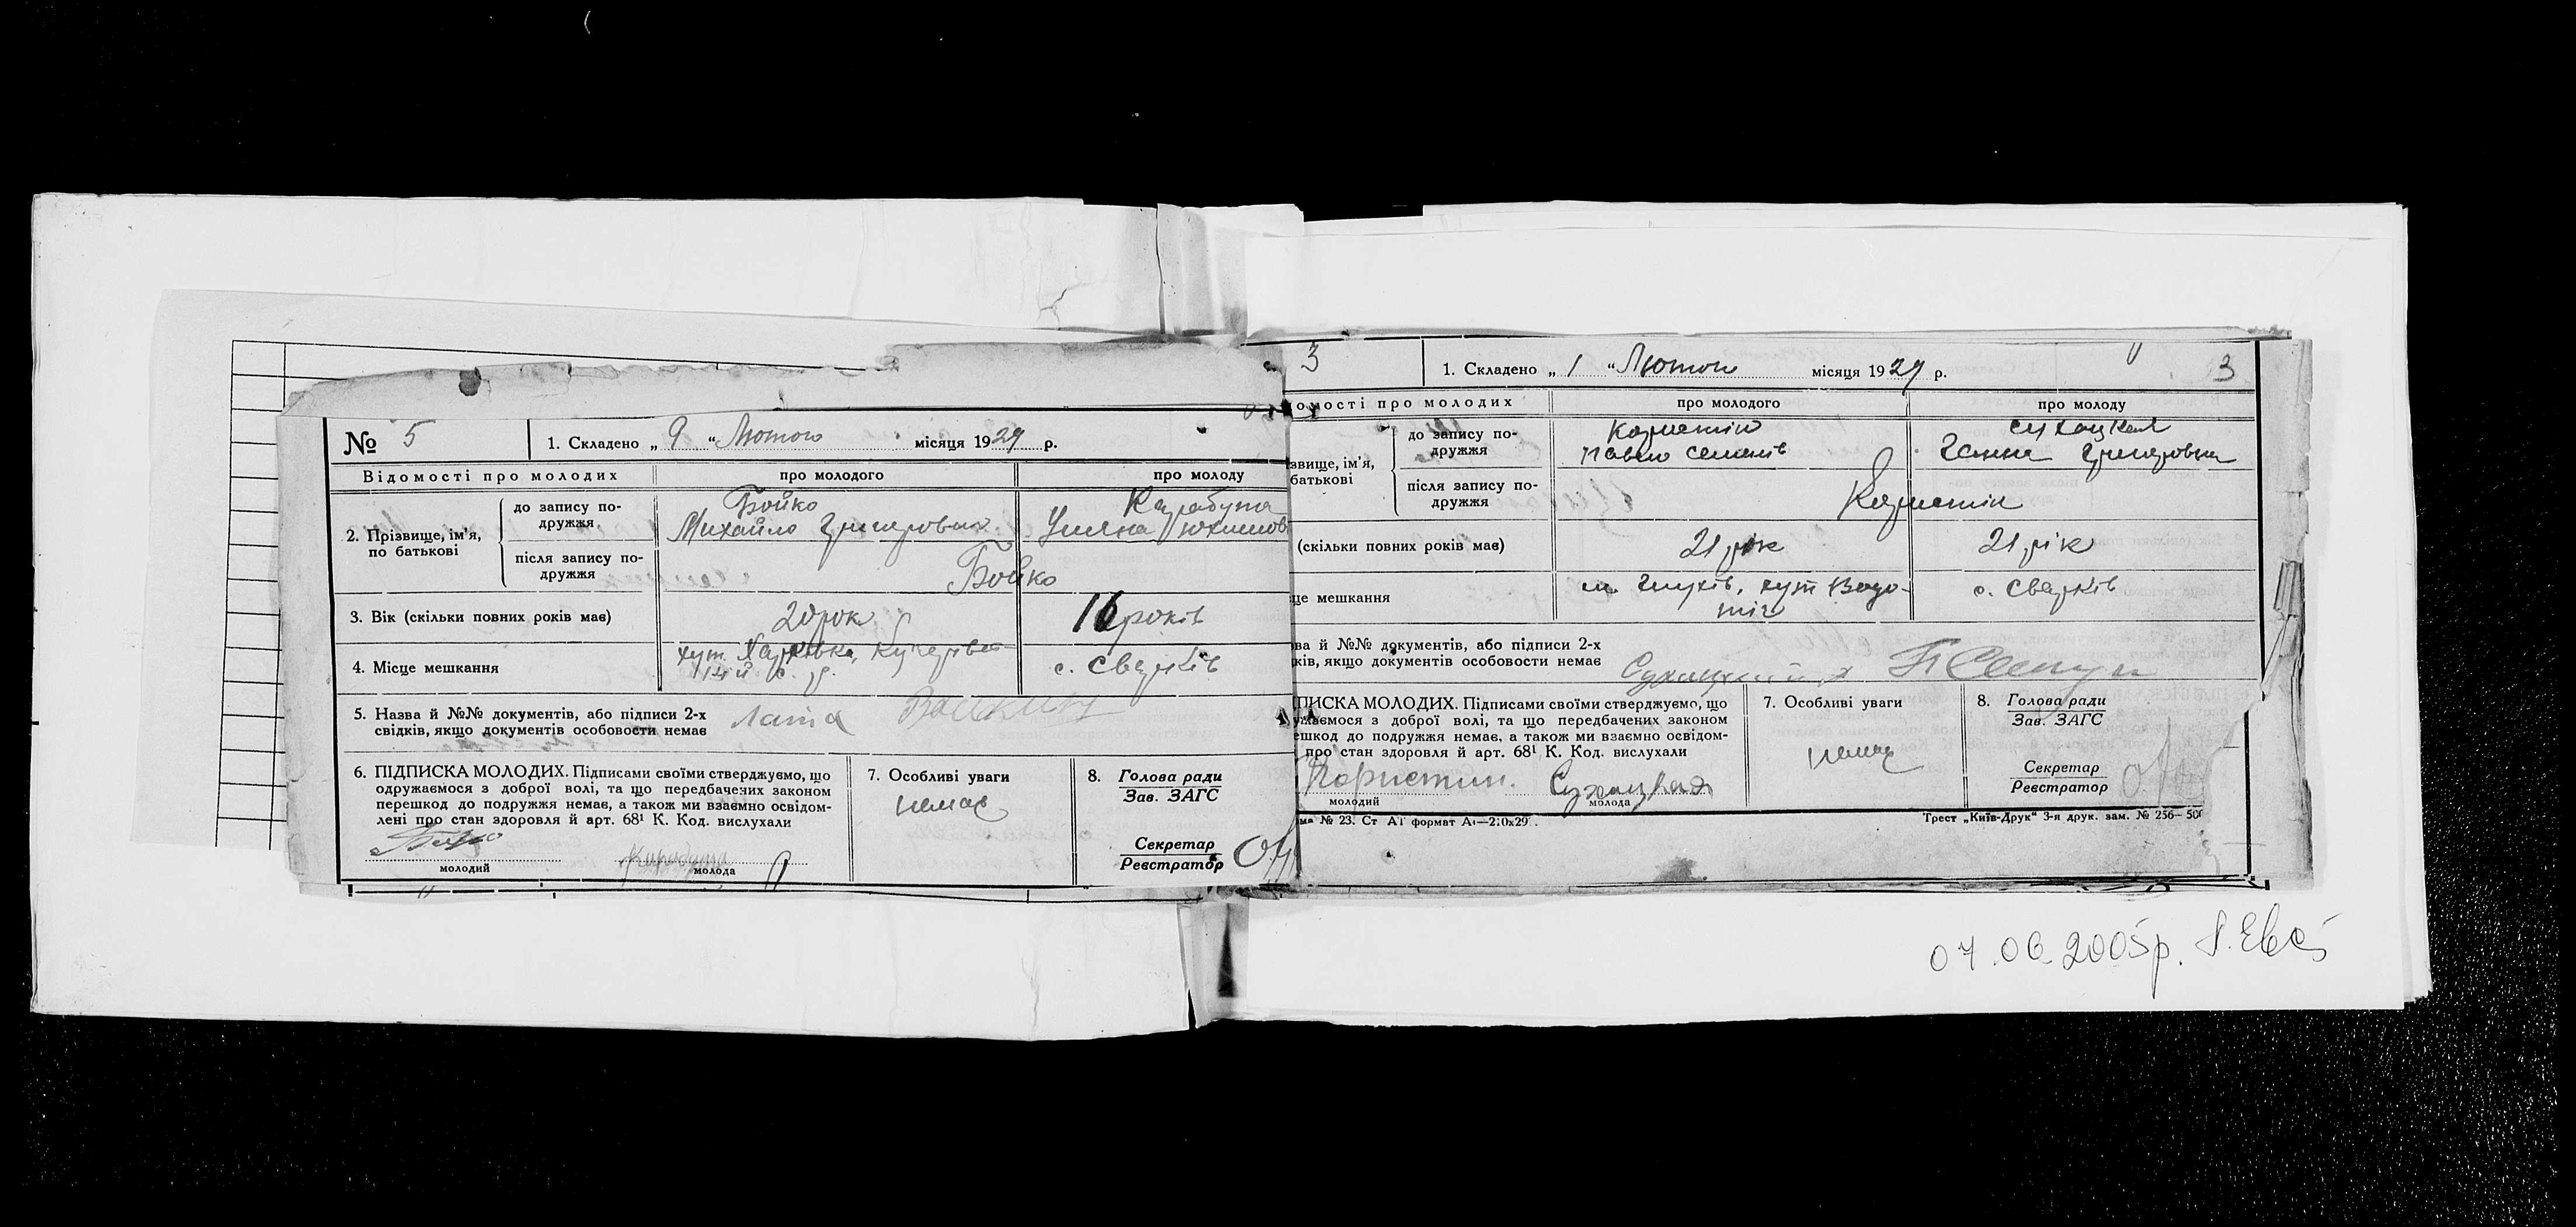 № 5
1. Складено „ 9 “ Лютого місяця 1929 р.
Відомості про молодих
про молодого
про молоду
2. Прізвище, ім'я,
по батькові
до запису по-
дружжя
Бойко
Михайло Григорович
Карабута
Уляна Юхимов
після запису по-
дружжя
Бойко
3. Вік (скільки повних років має)
20 рок
16 років
4. Місце мешкання
хут.
с. р.
с. Сварків
5. Назва й №№ документів, або підписи 2-х
свідків, якщо документів особовости немає
Лата
6. ПІДПИСКА МОЛОДИХ. Підписами своїми стверджуємо, що
одружаємося з доброї волі, та що передбачених законом
перешкод до подружжя немає, а також ми взаємно освідом-
лені про стан здоровля й арт. 68¹ К. Код. вислухали
молодий
Карабута
молода
7. Особливі уваги
немає
8. Голова ради
Зав. ЗАГС
Секретар
Реєстратор
3
1. Складено „ 1 “ Лютого місяця 1929 р.
3
омості про молодих
про молодого
про молоду
звище, ім'я,
батькові
до запису по-
дружжя
Павло Семенів
Сухацкая
Ганна Григоровна
після запису по-
дружжя
(скільки повних років має)
21 рік
21 рік
це мешкання
м. Глухів, хут
с. Сварків
ва й №№ документів, або підписи 2-х
ків, якщо документів особовости немає
ПИСКА МОЛОДИХ. Підписами своїми стверджуємо, що
ужаємося з доброї волі, та що передбачених законом
ешкод до подружжя немає, а також ми взаємно освідом-
про стан здоровля й арт. 68¹ К. Код. вислухали
молодий
Сухацкая
молода
7. Особливі уваги
немає
8. Голова ради
Зав. ЗАГС
Секретар
Реєстратор
ма № 23. Ст А1 формат А₄—210х29
Трест „Київ-Друк“ 3-я друк. зам. № 256—500
07.06.2005р.